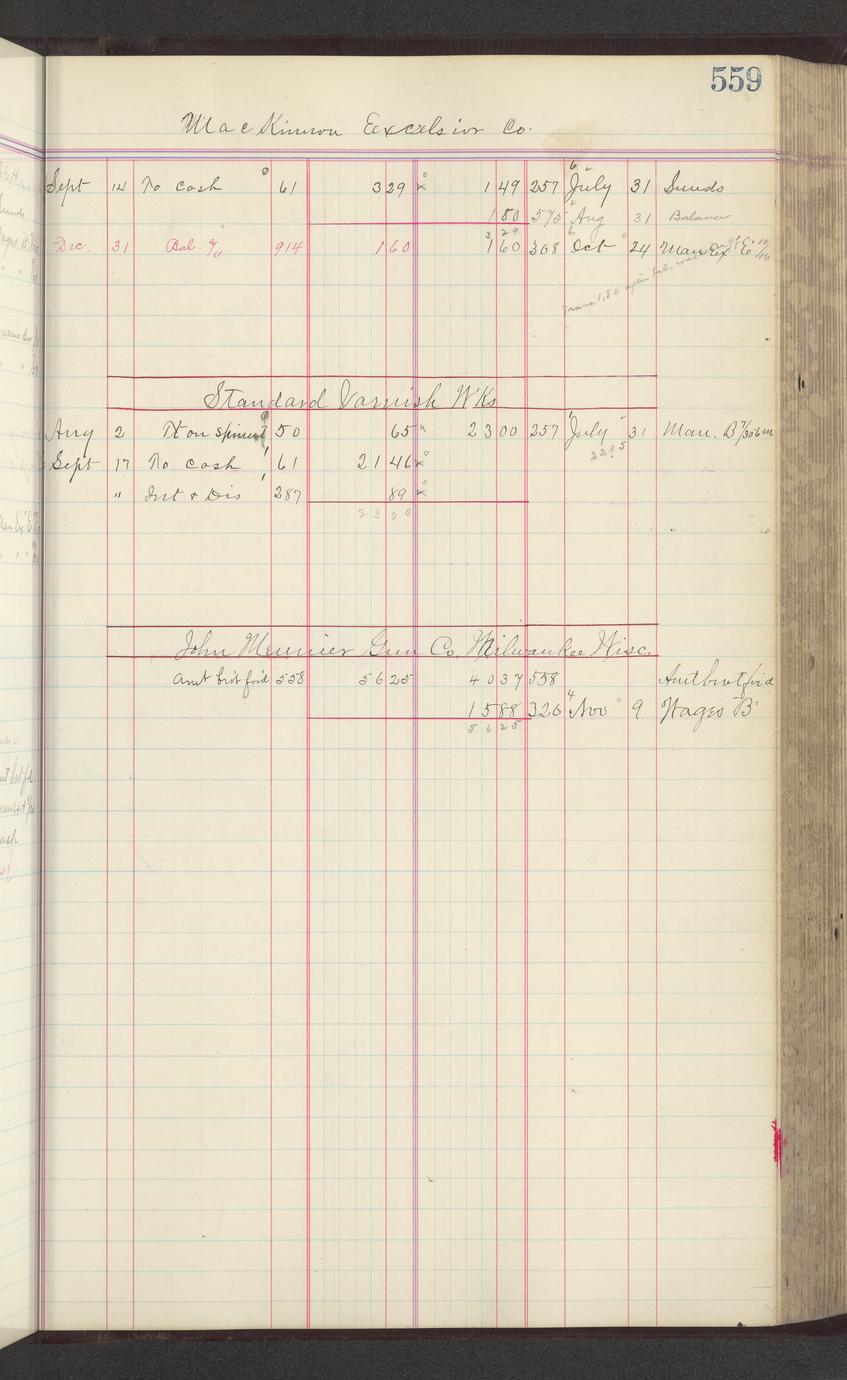 559
MacKinnon Excelsior Co.
Sept 14 To cash 61 3 29 1 49 257 July 31 Sunds
1 80 575 Aug 31 Balance
3 29
Dec. 31 Bal. 914 1 60 1 60 308 Oct 24 Man Ex "E" 10/16
Standard Varnish W'Ks
Aug 2 Frt on 50 65 23 00 257 July 31 Man. B
22 35
Sept 17 To cash 61 21 46
" Int & Dis 287 89
23 00
John Meunier Gun Co. Milwaukee Wisc.
Amt bro't for'd 558 56 25 40 37 558 Amt brot for'd
15 88 326 Nov 9 Wages "B"
56 25